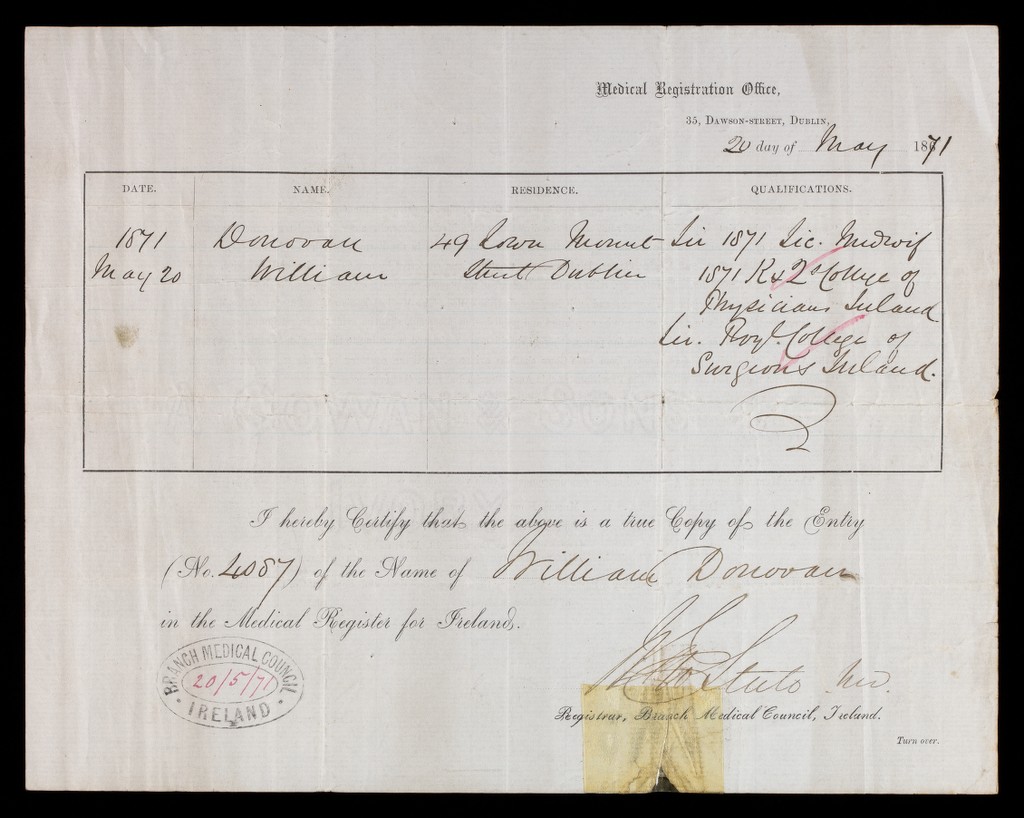 Medical Registration Office,
35, Dawson-street, Dublin,
20 day of May 1871
DATE. NAME. RESIDENCE. QUALIFICATIONS.
1871 Donovan 49 Lower Mount Lic 1871 Lic. Midwif
May 20 William Street Dublin 1871 K & Qs College of
Physicians Ireland
Lic. Royl. College of
Surgeons Ireland.
I hereby Certify that the above is a true Copy of the Entry
(No. 4087) of the Name of William Donovan
in the Medical Register for Ireland.
BRANCH MEDICAL COUNCIL
20/5/71
IRELAND
Registrar, Branch Medical Council, Ireland.
Turn over.